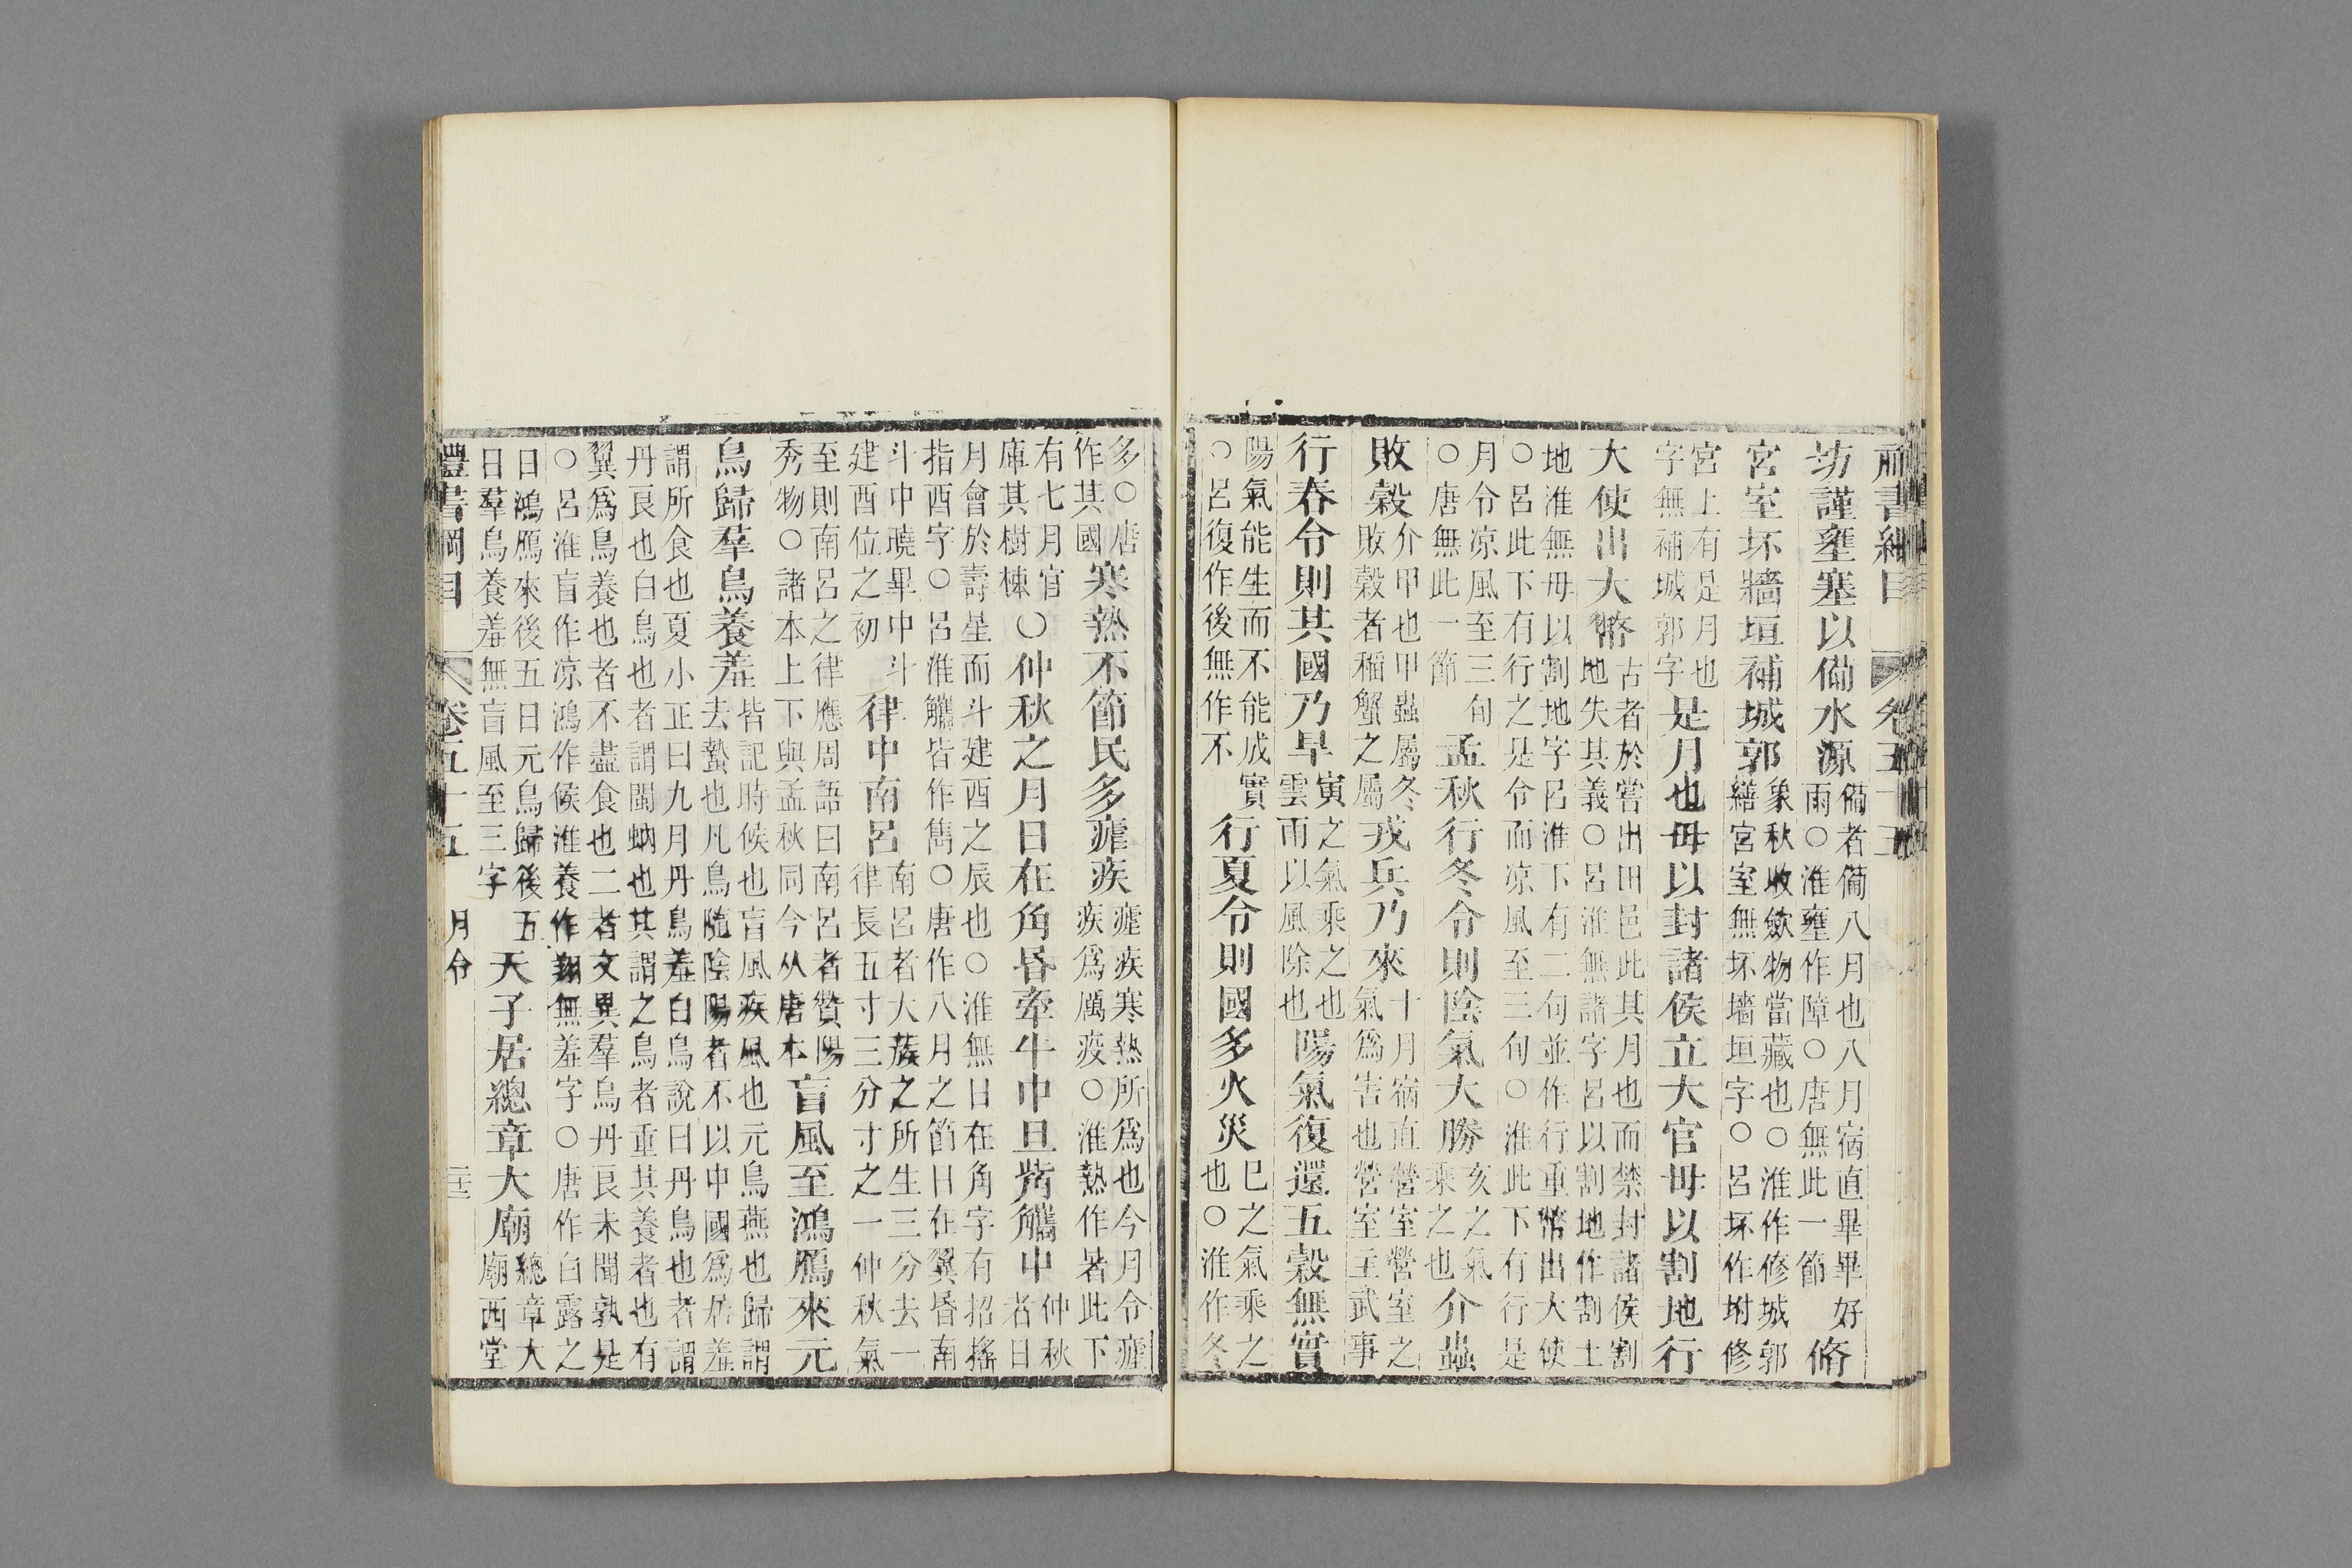 坊謹壅塞以備水源
備者備八月也八月宿直畢畢好
雨○淮壅作障○唐無此一節
脩
宮室坏牆垣補城郭
象秋收斂物當藏也○淮作修城郭
繕宮室無坏墻垣字○呂坏作坿修
宮上有是月也
字無補城郭字
是月也毋以封諸侯立大官毋以割地行
大使出大幣
古者於嘗出田邑此其月也而禁封諸侯割
地失其義○呂淮無諸字呂以割地作割土
地淮無毋以割地字呂淮下有二句並作行重幣出大使
○呂此下有行之是令而凉風至三旬○淮此下有行是
月令凉風至三旬
○唐無此一節
孟秋行冬令則陰氣大勝
亥之氣
乘之也
介蟲
敗穀
介甲也甲蟲屬冬
敗穀者稻蟹之屬
戎兵乃來
十月宿直營室營室之
氣爲害也營室主武事
行春令則其國乃旱
寅之氣乘之也
雲雨以風除也
陽氣復還五穀無實
陽氣能生而不能成實
○呂復作後無作不
行夏令則國多火災
巳之氣乘之
也○淮作冬
多○唐
作其國
寒熱不節民多瘧疾
瘧疾寒熱所爲也今月令瘧
疾爲厲疫○淮熱作暑此下
有七月官
庫其樹楝
○仲秋之月日在角昏牽牛中旦觜觿中
仲秋
者日
月會於壽星而斗建酉之辰也○淮無日在角字有招搖
指酉字○呂淮觿皆作雋○唐作八月之節日在翼昏南
斗中曉畢中斗
建酉位之初
律中南呂
南呂者大蔟之所生三分去一
律長五寸三分寸之一仲秋氣
至則南呂之律應周語曰南呂者贊陽
秀物○諸本上下與孟秋同今从唐本
盲風至鴻鴈來元
鳥歸羣鳥養羞
皆記時候也盲風疾風也元鳥燕也歸謂
去蟄也凡鳥隨陰陽者不以中國爲居羞
謂所食也夏小正曰九月丹鳥羞白鳥說曰丹鳥也者謂
丹良也白鳥也者謂閩蚋也其謂之鳥者重其養者也有
翼爲鳥養也者不盡食也二者文異羣鳥丹良未聞孰是
○呂淮盲作凉鴻作候淮養作翔無羞字○唐作白露之
日鴻鴈來後五日元鳥歸後五
日羣鳥養羞無盲風至三字
天子居總章大廟
總章大
廟西堂
禮書綱目 卷五十五 月令